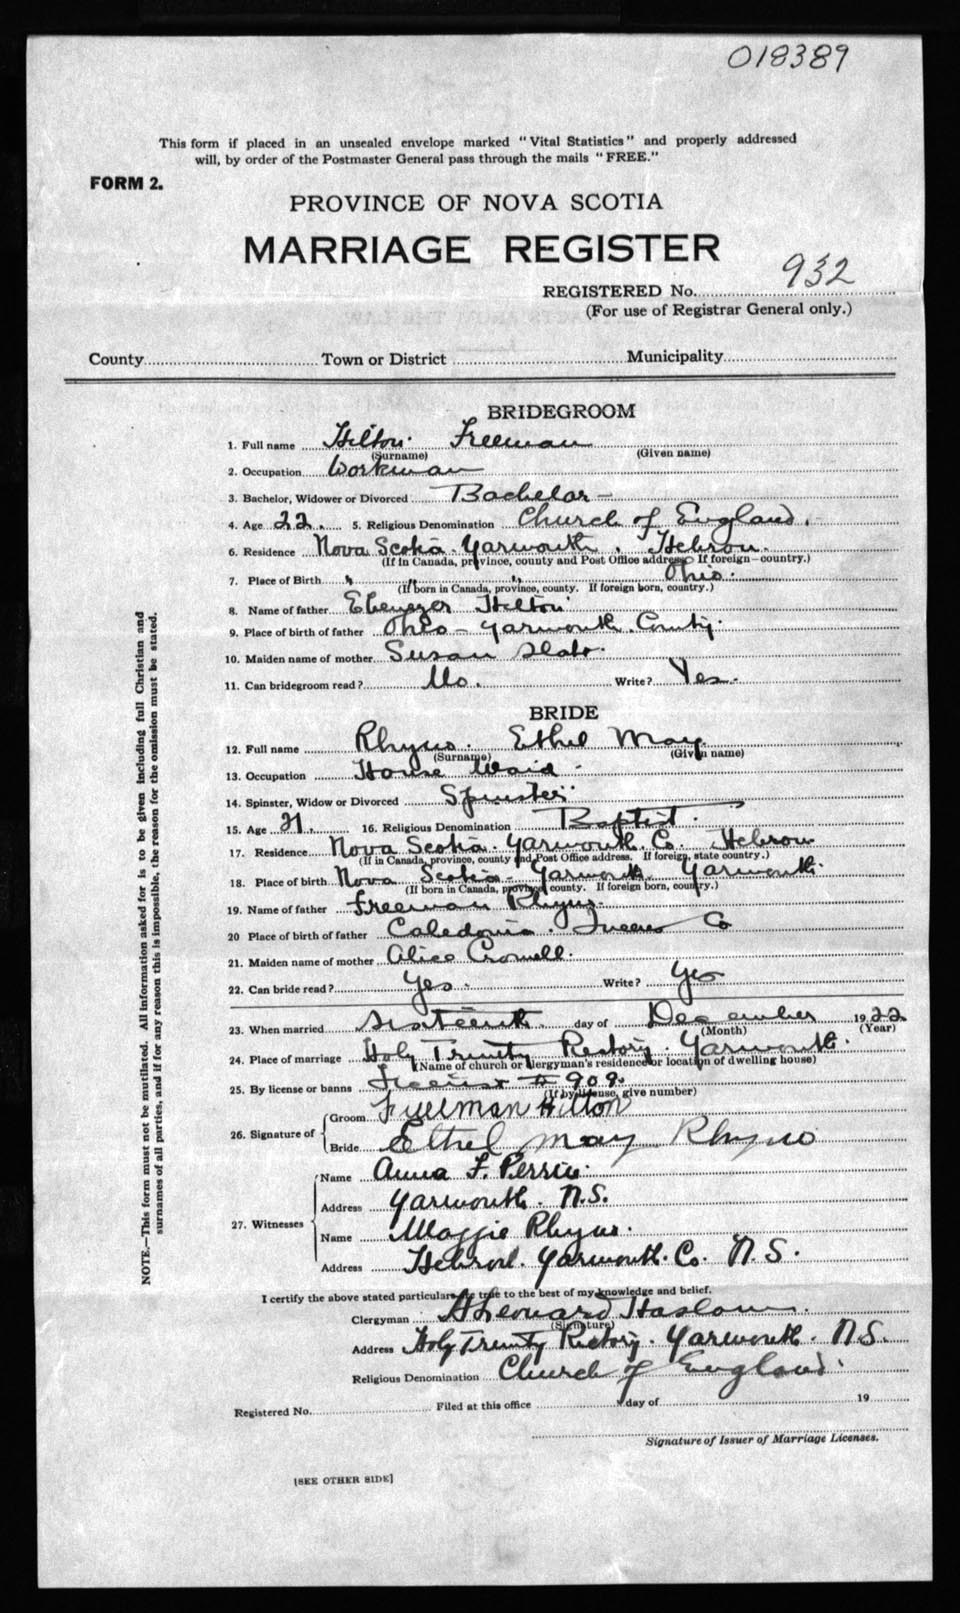 018389
This form if placed in an unsealed envelope marked "Vital Statistics" and properly addressed
will, by order of the Postmaster General pass through the mails "FREE."
FORM 2.
PROVINCE OF NOVA SCOTIA
MARRIAGE REGISTER
REGISTERED No. 932
(For use of Registrar General only.)
County Town or District Municipality
BRIDEGROOM
1. Full name Hilton. Freeman
(Surname) (Given name)
2. Occupation Workman
3. Bachelor, Widower or Divorced Bachelor -
4. Age 22. 5. Religious Denomination Church of England.
6. Residence Nova Scotia. Yarmouth. Hebron.
(If in Canada, province, county and Post Office address. If foreign—country.)
7. Place of Birth " " Ohio.
(If born in Canada, province, county. If foreign born, country.)
8. Name of father Ebenezer Hilton
9. Place of birth of father Ohio - Yarmouth. County.
10. Maiden name of mother Susan
11. Can bridegroom read? No. Write? Yes.
BRIDE
12. Full name Rhyno. Ethel May
(Surname) (Given name)
13. Occupation House Maid -
14. Spinster, Widow or Divorced Spinster
15. Age 21. 16. Religious Denomination Baptist.
17. Residence Nova Scotia. Yarmouth Co. Hebron
(If in Canada, province, county and Post Office address. If foreign, state country.)
18. Place of birth Nova Scotia - Yarmouth Yarmouth.
(If born in Canada, province, county. If foreign born, country.)
19. Name of father Freeman Rhyno.
20 Place of birth of father Caledonia. Queens Co
21. Maiden name of mother Alice Crowell.
22. Can bride read? Yes. Write? Yes
23. When married Sixteenth. day of December 1922
(Month) (Year)
24. Place of marriage Holy Trinity Rectory. Yarmouth.
(Name of church or clergyman's residence or location of dwelling house)
25. By license or banns License # 909.
(If by license, give number)
26. Signature of
Groom Freeman Hilton
Bride Ethel May Rhyno
27. Witnesses
Name Anna F. Perrin.
Address Yarmouth. N.S.
Name Maggie Rhyno.
Address Hebron. Yarmouth. Co. N.S.
I certify the above stated particulars are true to the best of my knowledge and belief.
Clergyman A Leonard Haslam.
(Signature)
Address Holy Trinity Rectory. Yarmouth. N.S.
Religious Denomination Church of England.
Registered No. Filed at this office day of 19
Signature of Issuer of Marriage Licenses.
[SEE OTHER SIDE]
NOTE.—This form must not be mutilated. All information asked for is to be given including full Christian and
surnames of all parties, and if for any reason this is impossible, the reason for the omission must be stated.